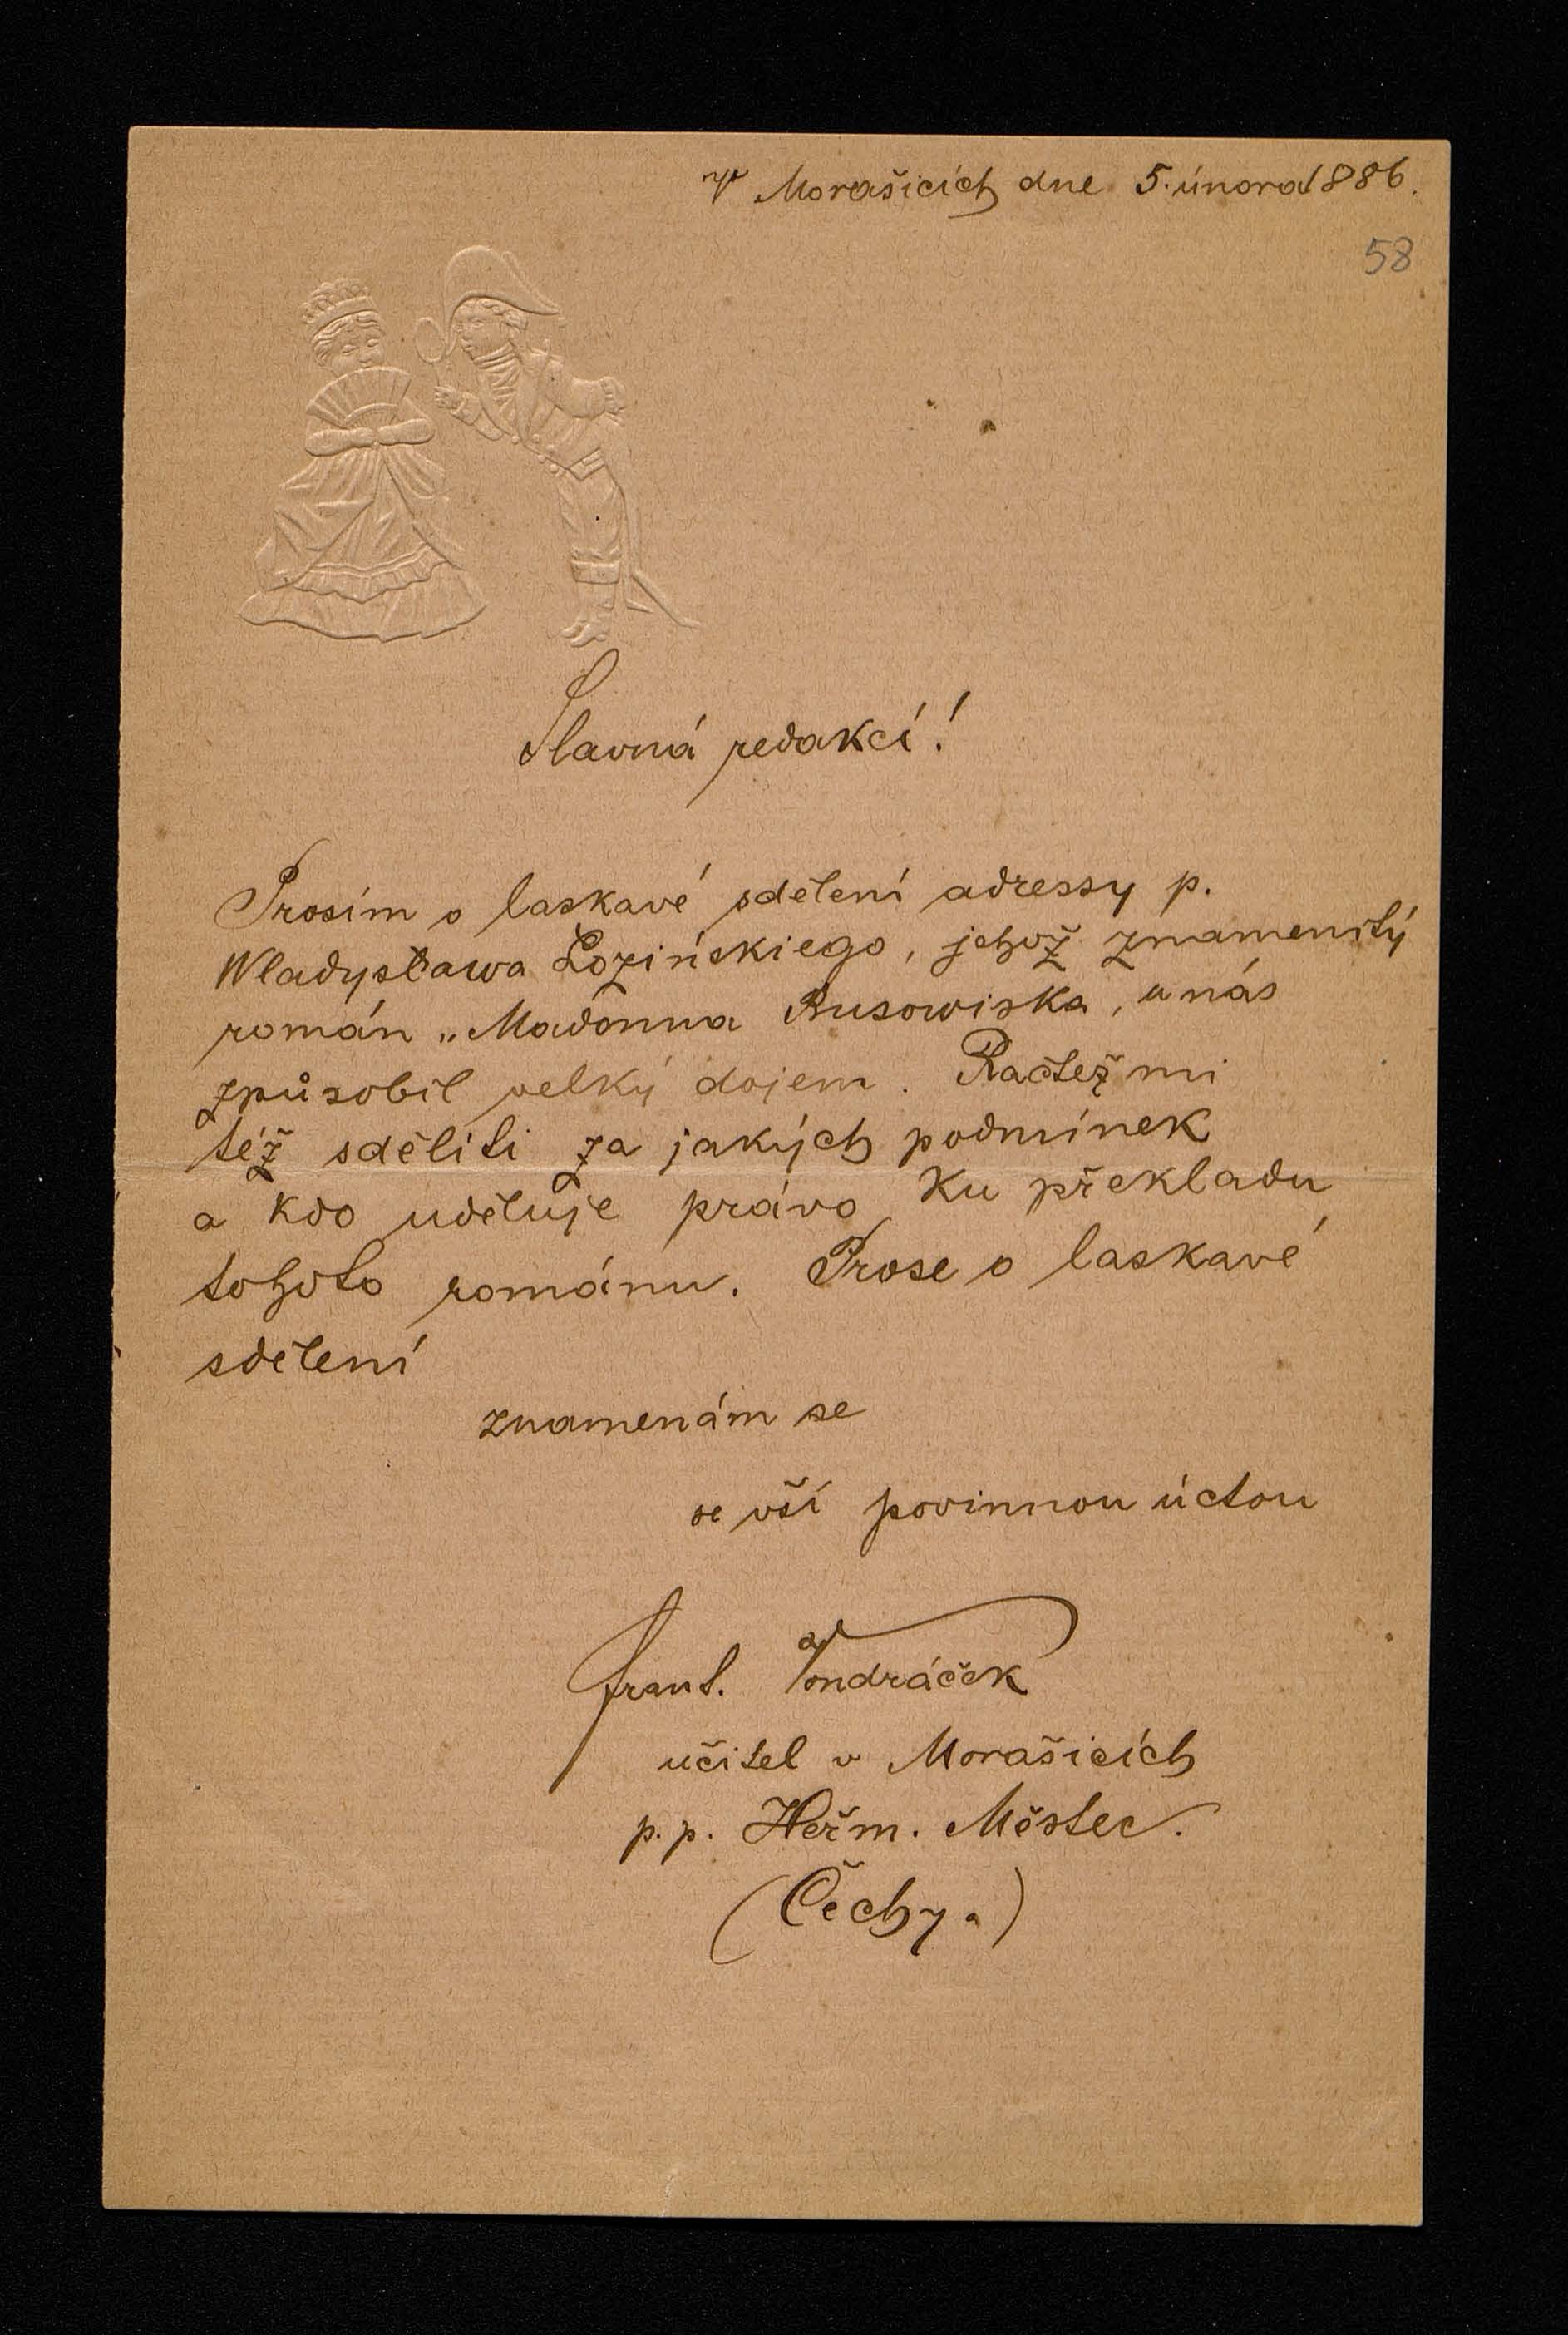 V Morašicích dne 5. února 1886.
58
Slavná redakcí!
Prosím o laskavé sdělení adressy p.
Wladysława Łozińskiego, jehož znamenitý
román „Madonna Busowiska, u nás
způsobil velký dojem. Račtež mi
též sděliti za jakých podmínek
a kdo uděluje právo ku překladu
tohoto románu. Prose o laskavé
sdělení
znamenám se
se vší povinnou úctou
Frant. Vondráček
učitel v Morašicích
p. p. Heřm. Městec.
(Čechy.)